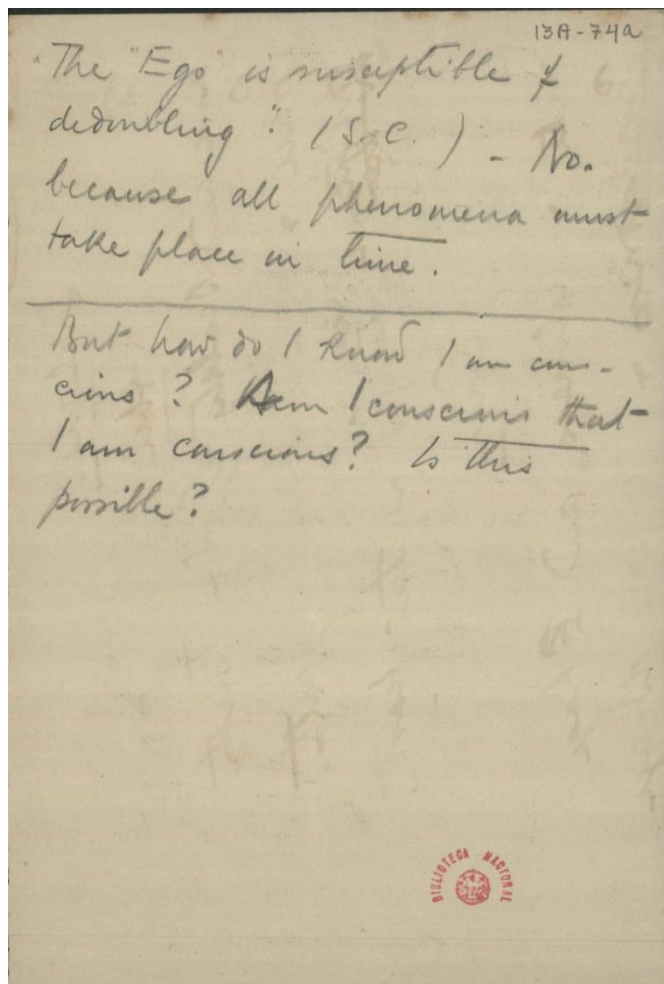 13A-74a
"The "Ego" is susceptible of
dedoubling". (S.C.) - No.
because all phenomena must
take place in time.
But how do I know I am cons-
cious? Am I conscious that
I am conscious? Is this
possible?
BIBLIOTECA NACIONAL